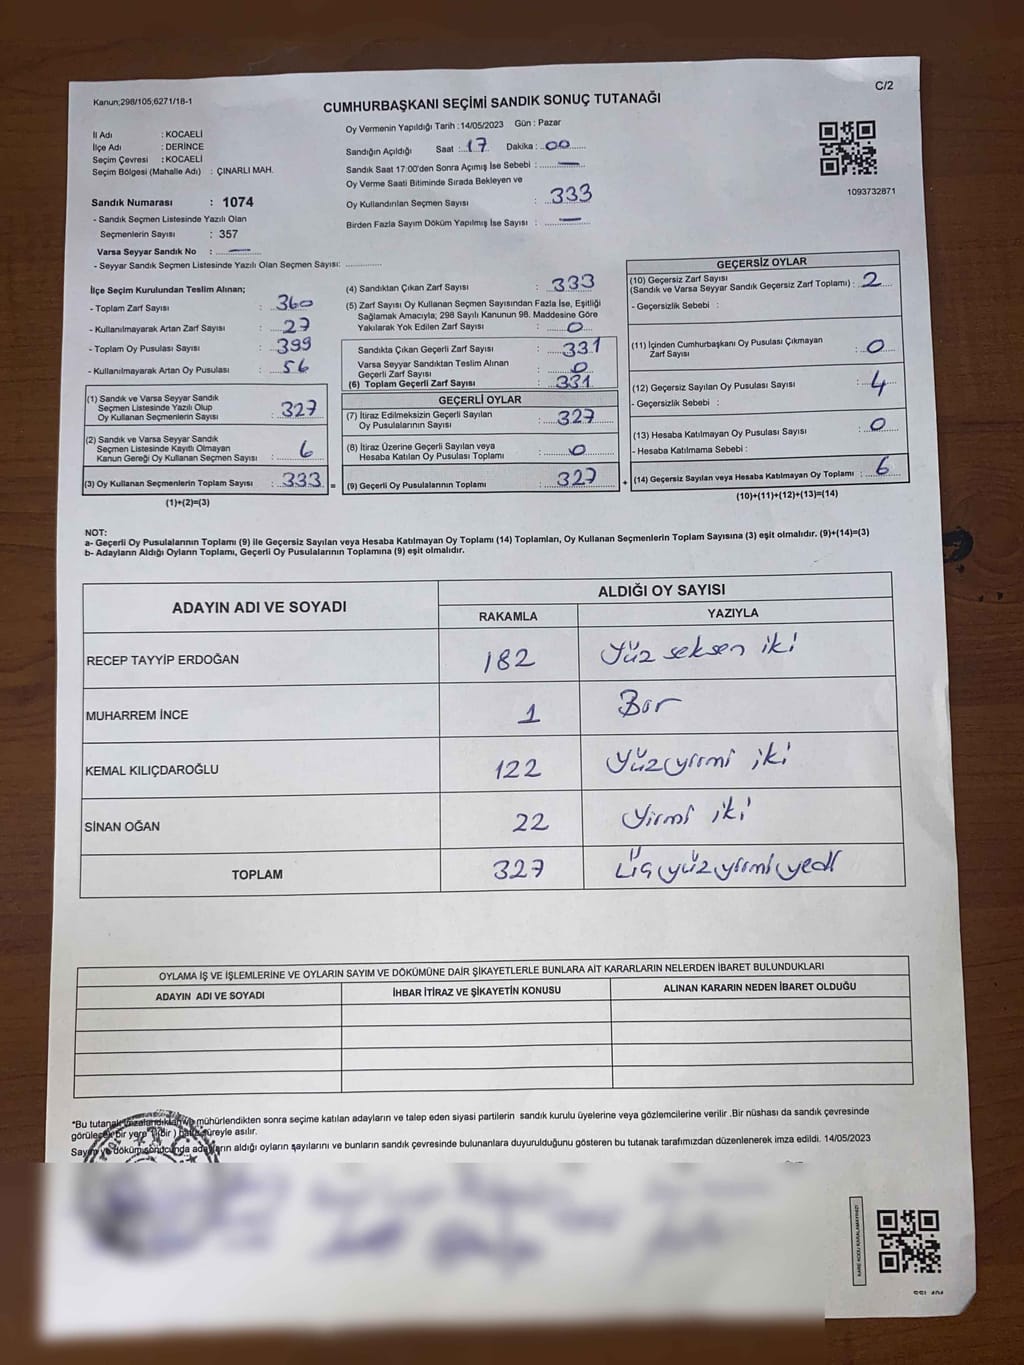 Kanun;298/105;6271/18-1
C/2
CUMHURBAŞKANI SEÇİMİ SANDIK SONUÇ TUTANAĞI
İl Adı : KOCAELİ
İlçe Adı : DERİNCE
Seçim Çevresi : KOCAELİ
Seçim Bölgesi (Mahalle Adı) : ÇINARLI MAH.
Sandık Numarası : 1074
- Sandık Seçmen Listesinde Yazılı Olan
Seçmenlerin Sayısı : 357
Varsa Seyyar Sandık No : —
- Seyyar Sandık Seçmen Listesinde Yazılı Olan Seçmen Sayısı: ............
Oy Vermenin Yapıldığı Tarih : 14/05/2023 Gün : Pazar
Sandığın Açıldığı Saat : 17 Dakika : 00
Sandık Saat 17:00'den Sonra Açımış İse Sebebi : —
Oy Verme Saati Bitiminde Sırada Bekleyen ve
Oy Kullandırılan Seçmen Sayısı : 333
Birden Fazla Sayım Döküm Yapılmış İse Sayısı : —
1093732871
İlçe Seçim Kurulundan Teslim Alınan;
- Toplam Zarf Sayısı : 360
- Kullanılmayarak Artan Zarf Sayısı : 27
- Toplam Oy Pusulası Sayısı : 399
- Kullanılmayarak Artan Oy Pusulası : 56
(1) Sandık ve Varsa Seyyar Sandık
Seçmen Listesinde Yazılı Olup
Oy Kullanan Seçmenlerin Sayısı : 327
(2) Sandık ve Varsa Seyyar Sandık
Seçmen Listesinde Kayıtlı Olmayan
Kanun Gereği Oy Kullanan Seçmen Sayısı : 6
(3) Oy Kullanan Seçmenlerin Toplam Sayısı : 333 =
(1)+(2)=(3)
(4) Sandıktan Çıkan Zarf Sayısı : 333
(5) Zarf Sayısı Oy Kullanan Seçmen Sayısından Fazla İse, Eşitliği
Sağlamak Amacıyla; 298 Sayılı Kanunun 98. Maddesine Göre
Yakılarak Yok Edilen Zarf Sayısı : 0
Sandıkta Çıkan Geçerli Zarf Sayısı : 331
Varsa Seyyar Sandıktan Teslim Alınan
Geçerli Zarf Sayısı : 0
(6) Toplam Geçerli Zarf Sayısı : 331
GEÇERLİ OYLAR
(7) İtiraz Edilmeksizin Geçerli Sayılan
Oy Pusulalarının Sayısı : 327
(8) İtiraz Üzerine Geçerli Sayılan veya
Hesaba Katılan Oy Pusulası Toplamı : 0
(9) Geçerli Oy Pusulalarının Toplamı : 327 +
GEÇERSİZ OYLAR
(10) Geçersiz Zarf Sayısı
(Sandık ve Varsa Seyyar Sandık Geçersiz Zarf Toplamı) : 2
- Geçersizlik Sebebi :
(11) İçinden Cumhurbaşkanı Oy Pusulası Çıkmayan
Zarf Sayısı : 0
(12) Geçersiz Sayılan Oy Pusulası Sayısı : 4
- Geçersizlik Sebebi :
(13) Hesaba Katılmayan Oy Pusulası Sayısı : 0
- Hesaba Katılmama Sebebi :
(14) Geçersiz Sayılan veya Hesaba Katılmayan Oy Toplamı : 6
(10)+(11)+(12)+(13)=(14)
NOT:
a- Geçerli Oy Pusulalarının Toplamı (9) ile Geçersiz Sayılan veya Hesaba Katılmayan Oy Toplamı (14) Toplamları, Oy Kullanan Seçmenlerin Toplam Sayısına (3) eşit olmalıdır. (9)+(14)=(3)
b- Adayların Aldığı Oyların Toplamı, Geçerli Oy Pusulalarının Toplamına (9) eşit olmalıdır.
ADAYIN ADI VE SOYADI
ALDIĞI OY SAYISI
RAKAMLA YAZIYLA
RECEP TAYYİP ERDOĞAN 182 Yüz seksen iki
MUHARREM İNCE 1 Bir
KEMAL KILIÇDAROĞLU 122 Yüzyirmi iki
SİNAN OĞAN 22 Yirmi iki
TOPLAM 327 Üçyüzyirmiyedi
OYLAMA İŞ VE İŞLEMLERİNE VE OYLARIN SAYIM VE DÖKÜMÜNE DAİR ŞİKAYETLERLE BUNLARA AİT KARARLARIN NELERDEN İBARET BULUNDUKLARI
ADAYIN ADI VE SOYADI İHBAR İTİRAZ VE ŞİKAYETİN KONUSU ALINAN KARARIN NEDEN İBARET OLDUĞU
*Bu tutanak imzalandıktan ve mühürlendikten sonra seçime katılan adayların ve talep eden siyasi partilerin sandık kurulu üyelerine veya gözlemcilerine verilir .Bir nüshası da sandık çevresinde
görülecek bir yere 1 (bir ) hafta süreyle asılır.
Sayım ve döküm sonucunda adayların aldığı oyların sayılarını ve bunların sandık çevresinde bulunanlara duyurulduğunu gösteren bu tutanak tarafımızdan düzenlenerek imza edildi. 14/05/2023
KARE KODU KARALAMAYINIZ!